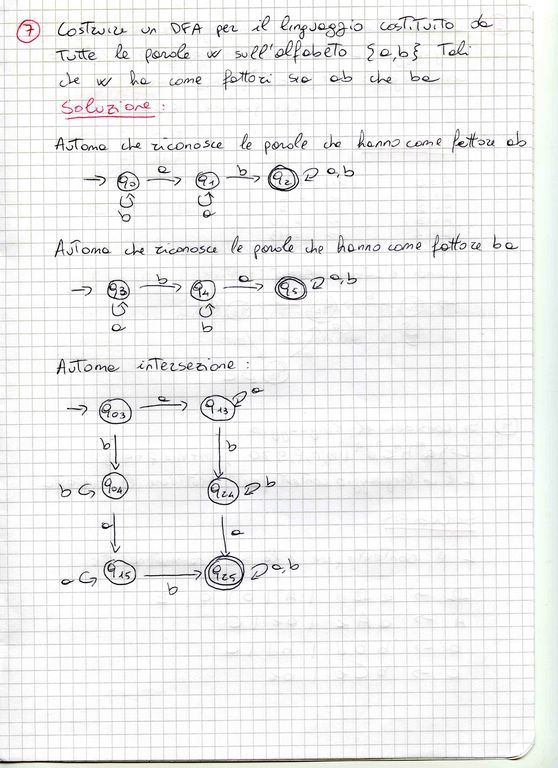 7 Costruire un DFA per il linguaggio costituito da
tutte le parole w sull'alfabeto {a,b} tali
che w ha come fattori sia ab che ba
Soluzione:
Automa che riconosce le parole che hanno come fattore ab
q0 a q1 b q2 a,b
b a
Automa che riconosce le parole che hanno come fattore ba
q3 b q4 a q5 a,b
a b
Automa intersezione:
q03 a q13 a
b b
b q04 q24 b
a a
a q15 b q25 a,b